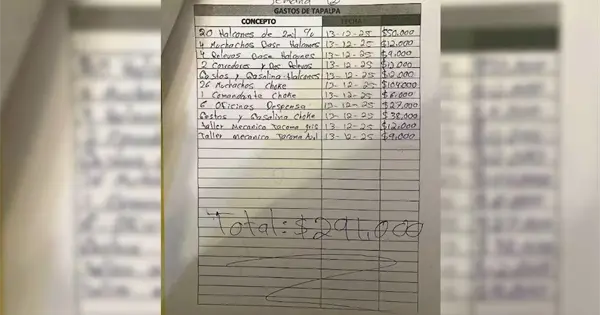 Semana
GASTOS DE TAPALPA
CONCEPTO FECHA
20 Halcones de 2mil % 13-12-25 $50,000
4 Muchachos Base Halcones 13-12-25 $12,000
4 Relevos Base Halcones 13-12-25 $9,000
2 Corredores y Dos Relevos 13-12-25
Gastos y Gasolina Halcones 13-12-25
26 Muchachos Choke 13-12-25 $104,000
1 Comandante Choke 13-12-25
6 Oficinas Despensa 13-12-25 $27,000
Gastos y Gasolina Choke 13-12-25 $38,000
Taller Mecanico Tacoma gris 13-12-25 $12,000
Taller mecanico Tacoma Azul 13-12-25 $9,000
Total: $291,000